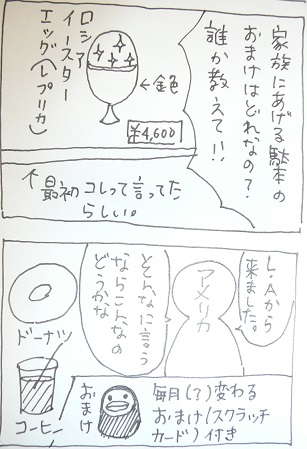 家族にあげる駄本の
おまけはどれなの?
誰か教えて!!
ロシア
イースター
エッグ(レプリカ)
←金色
¥4,600
↑最初コレって言ってた
らしい。
L.Aから
来ました。
アメリカ
そんなに言う
ならこんなの
どうかな
ドーナツ
コーヒー
おまけ
毎月(?)変わる
おまけ(スクラッチ
カード)付き